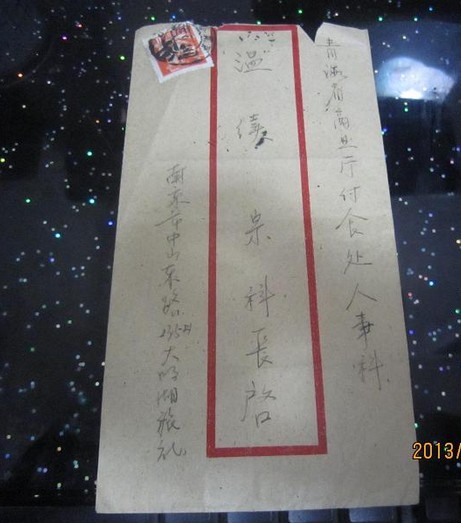 青海省商业厅付食处人事科
温绩泉科长启
南京市中山东路
大明湖旅社
2013/